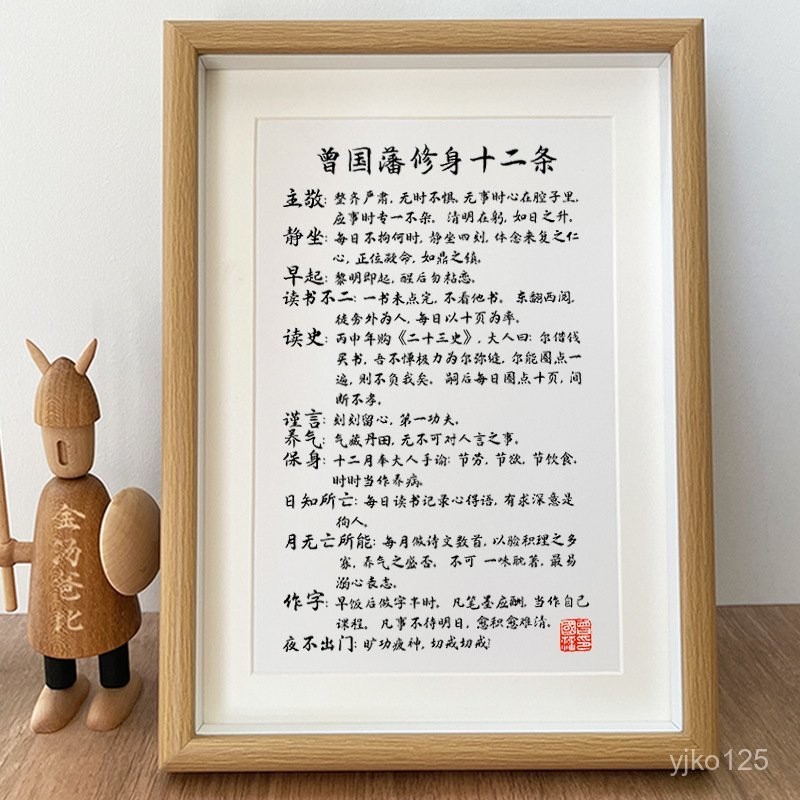 曾国藩修身十二条
主敬: 整齐严肃, 无时不惧。无事时心在腔子里,
应事时专一不杂。 清明在躬, 如日之升。
静坐: 每日不拘何时, 静坐四刻, 体念来复之仁
心, 正位凝命, 如鼎之镇。
早起: 黎明即起, 醒后勿粘恋。
读书不二: 一书未点完, 不看他书。 东翻西阅,
徒务外为人, 每日以十页为率。
读史: 丙申年购《二十三史》, 大人曰: 尔借钱
买书, 吾不惮极力为尔弥缝, 尔能圈点一
遍, 则不负我矣。 嗣后每日圈点十页, 间
断不孝。
谨言: 刻刻留心, 第一功夫。
养气: 气藏丹田, 无不可对人言之事。
保身: 十二月奉大人手谕: 节劳, 节欲, 节饮食,
时时当作养病。
日知所亡: 每日读书记录心得语, 有求深意是
徇人。
月无亡所能: 每月做诗文数首, 以验积理之多
寡, 养气之盛否。 不可 一味耽著, 最易
溺心丧志。
作字: 早饭后做字半时。 凡笔墨应酬, 当作自己
课程。 凡事不待明日, 愈积愈难清。
夜不出门: 旷功疲神, 切戒切戒!
金汤爸比
yjko125